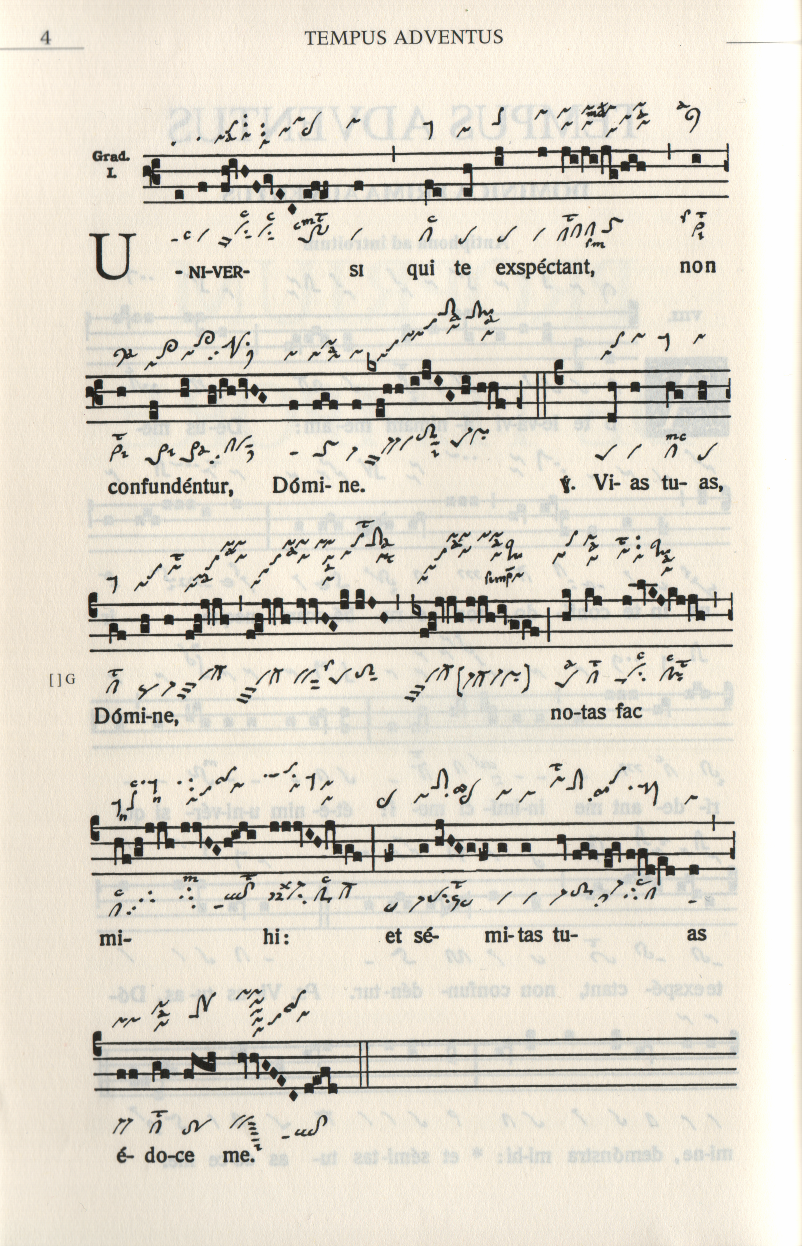 4 TEMPUS ADVENTUS
Grad.
I.
U - NI-VER- SI qui te exspéctant, non
confundéntur, Dómi- ne. ℣. Vi- as tu- as,
[ ] G
Dómi-ne, no-tas fac
mi- hi: et sé- mi-tas tu- as
é- do-ce me.